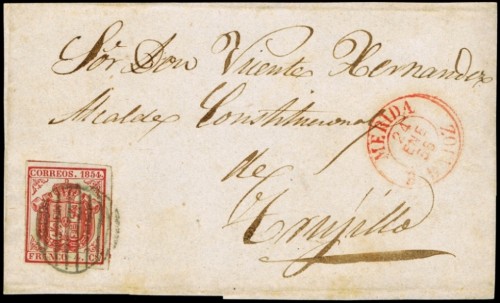 Sőr Don Vicente Hernandez
Alcalde Constitucional
de
Trujillo
MERIDA
24
ENE
CORREOS. 1854.
FRANCO 4 CS.